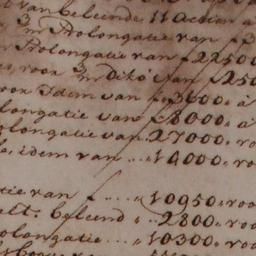 van beleende 11 Actien a
3/m Prolongatie van f3
Prolongatie van f22500
voor 3/m Dito van f250
voor Idem van f 3600. à
longatie van f 8000. à
olongatie van 27000. vo
idem van .. „ 14000. vo
tie van f .... „ 10950. voo
belt: beleend „ .. 2800. voo
olongatie .... „ 10300. voo